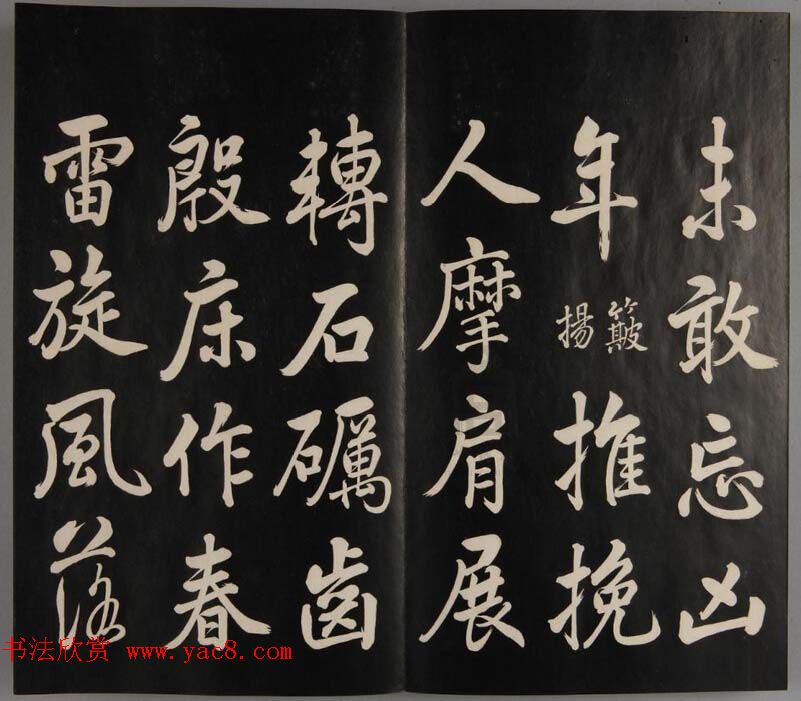 未敢忘凶
年簸揚推挽
人摩肩展
轉石礪齒
殷床作春
雷旋風落
书法欣赏 www.yac8.com